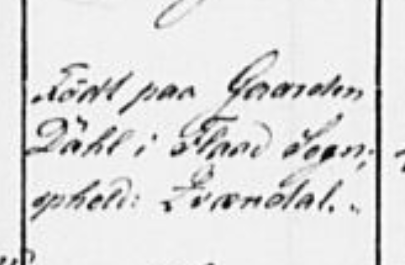 Födt paa Gaarden
Dahl i Flaad Sogn;
opheld: Qvændal.